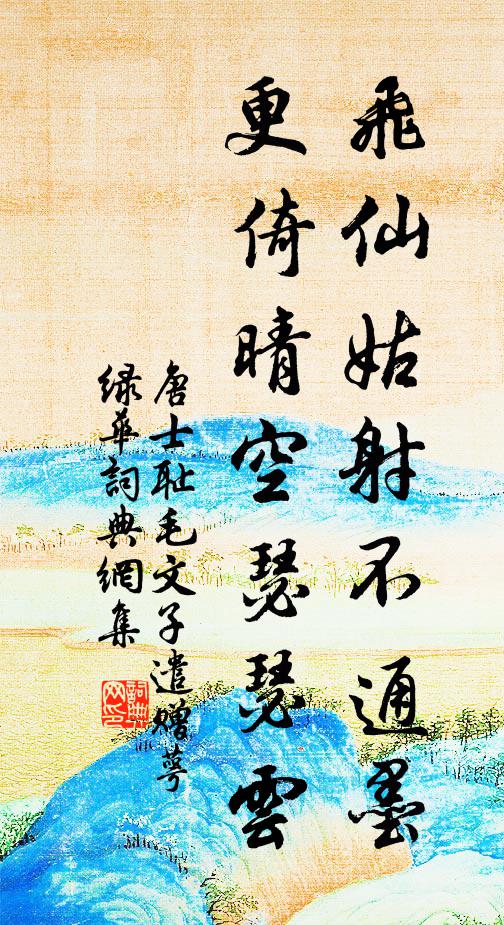 飛仙姑射不通墨
更倚晴空瑟瑟雲
唐士耻毛文子遣贈萼
緑華詞典網集
詞典
网印